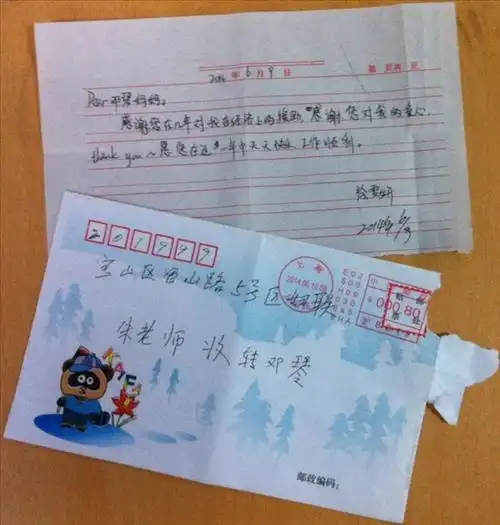 2014年6月9日
Dear 邓琴妈妈:
感谢您在几年对我在经济上的援助,感谢您对我的爱心,
thank you~愿您在这一年中天天健康 工作顺利。
2014年6/9
201999
宝山区宝山路5号区妇联
朱老师 收 转邓琴
上海
000.80
邮政编码: